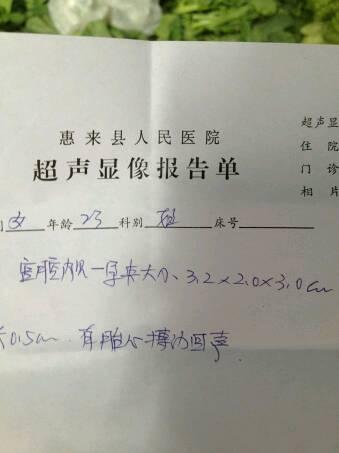 惠来县人民医院
超声显像报告单
超声显
住院
门诊
相片
女 年龄 23 科别 床号
宫腔内见一孕囊大小 3.2×2.0×3.0cm
长0.5cm. 有胎心搏动回声